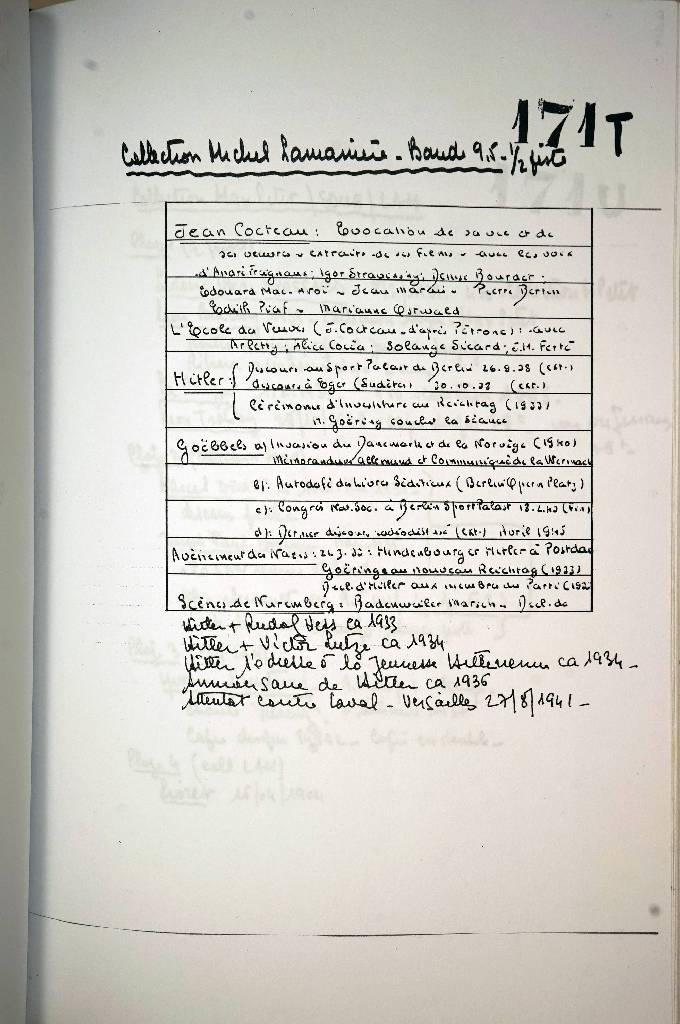 171T
Collection Michel Lamarinière - Bande 9,5 - 1/2 piste
Jean Cocteau : Evocation de sa vie et de
ses oeuvres - extraits de ses films - avec les voix
d'André Fraigneau ; Igor Strawinsky ; Denise Bourdet ;
Edouard Mac-Avoï - Jean Marais - Pierre Bertin
Edith Piaf - Marianne Oswald
L'Ecole des Veuves (J. Cocteau - d'après Pétrone) : avec
Arletty ; Alice Cocéa ; Solange Sicard ; J.H. Ferté
Discours au Sport Palast de Berlin 26.9.38 (ext.)
Hitler : discours à Eger (Sudètes) 30.10.38 (ext.)
Cérémonie d'Investiture au Reichtag (1933)
M. Goëring conclut la séance
Goëbbels a) Invasion du Danemark et de la Norvège (1940)
Mémorandum Allemand et Communiqué de la Wermach
b) : Autodafé de Livres Séditieux (Berlin Opern Platz)
c) : Congrès Nat. Soc. à Berlin SportPalast 18.2.43 (fin)
d) : Dernier discours radiodiffusé (ext.) Avril 1945
Avènement des Nazis : 21.3.33 : Hindenbourg et Hitler à Postda
Goëring au nouveau Reichtag (1933)
Decl. d'Hitler aux membres du Parti (193
Scènes de Nuremberg : Badenweiler Marsch - Decl. de
Hitler + Rudolf Hess ca 1933
Hitler + Victor Lutze ca 1934
Hitler s'adresse à la Jeunesse Hitlerienne ca 1934 -
Anniversaire de Hitler ca 1936
Attentat contre Laval - Versailles 27/8/1941 -